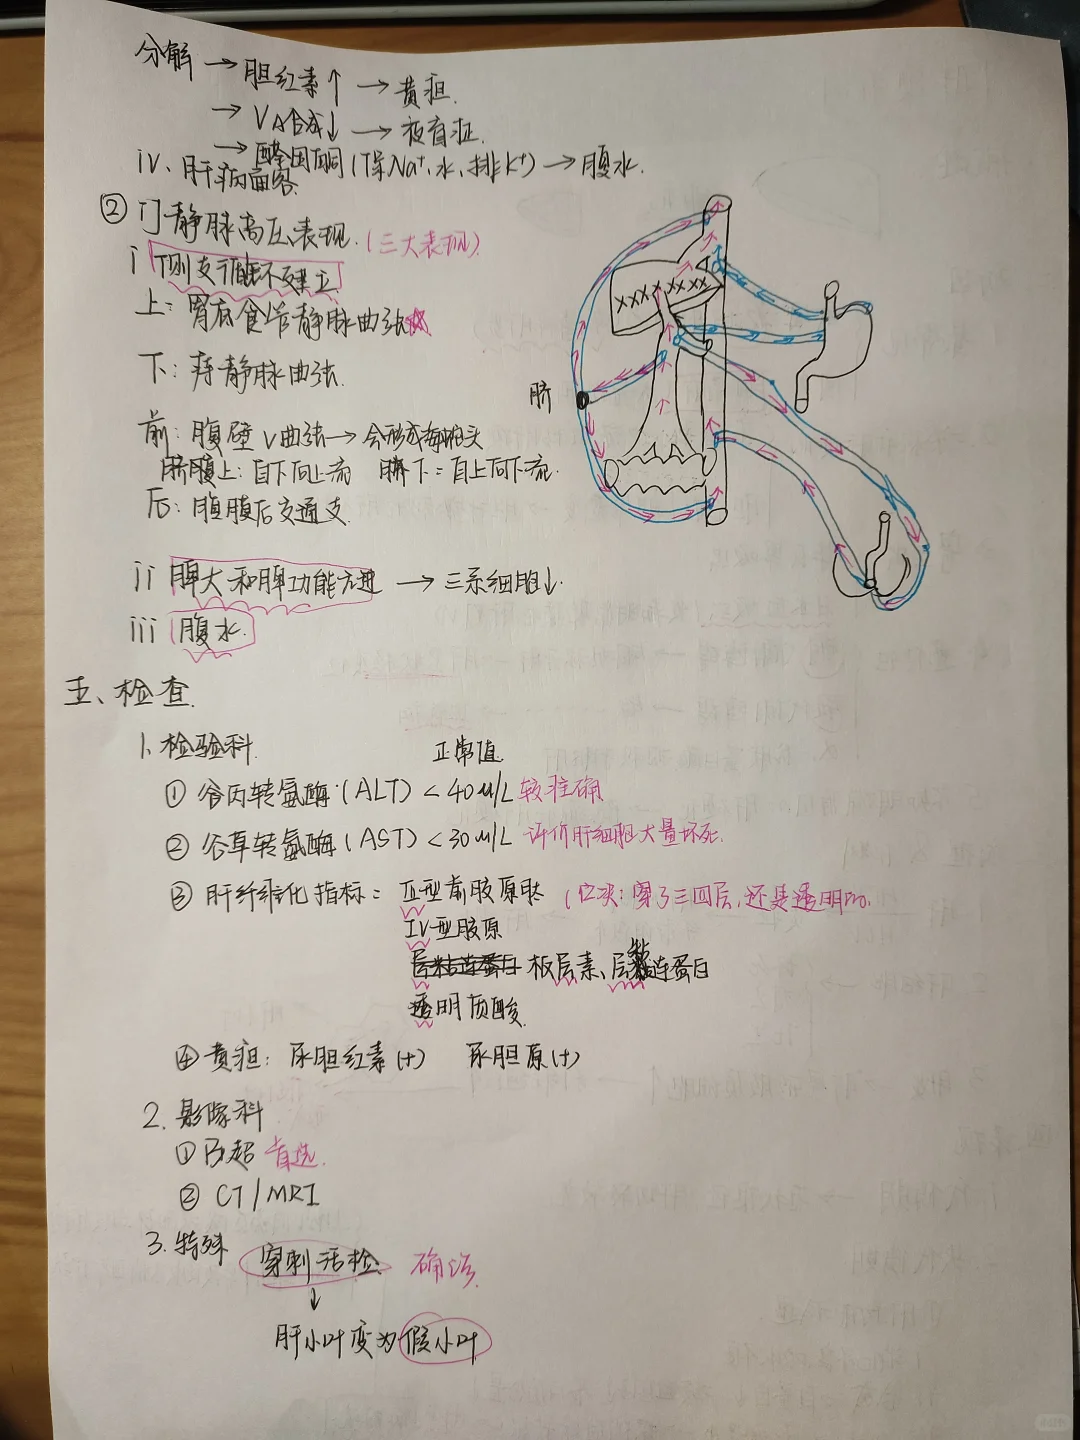 分解 → 胆红素↑ → 黄疸.
→ VA合成↓ → 夜盲症.
→ 醛固酮(保Na⁺、水、排K⁺) → 腹水.
iv、肝病面容
② 门静脉高压表现.(三大表现)
i 侧支循环建立
上: 胃底食管静脉曲张☆
下: 痔静脉曲张.
脐
前: 腹壁V曲张→会形成海蛇头
脐腹上: 自下向上流 脐下: 自上向下流.
后: 腹膜后交通支.
ii 脾大和脾功能亢进 → 三系细胞↓.
iii 腹水.
五、检查.
1. 检验科. 正常值
① 谷丙转氨酶:(ALT) < 40u/L 较准确
② 谷草转氨酶(AST) < 30u/L 评价肝细胞大量坏死.
③ 肝纤维化指标: III型前胶原肽 (口诀: 穿了三四层, 还是透明的.
IV型胶原
板层素、层粘连蛋白
透明质酸.
④ 黄疸: 尿胆红素(+) 尿胆原(+)
2. 影像科
① B超 首选.
② CT/MRI
3. 特殊 穿刺活检 确诊.
↓
肝小叶变为假小叶